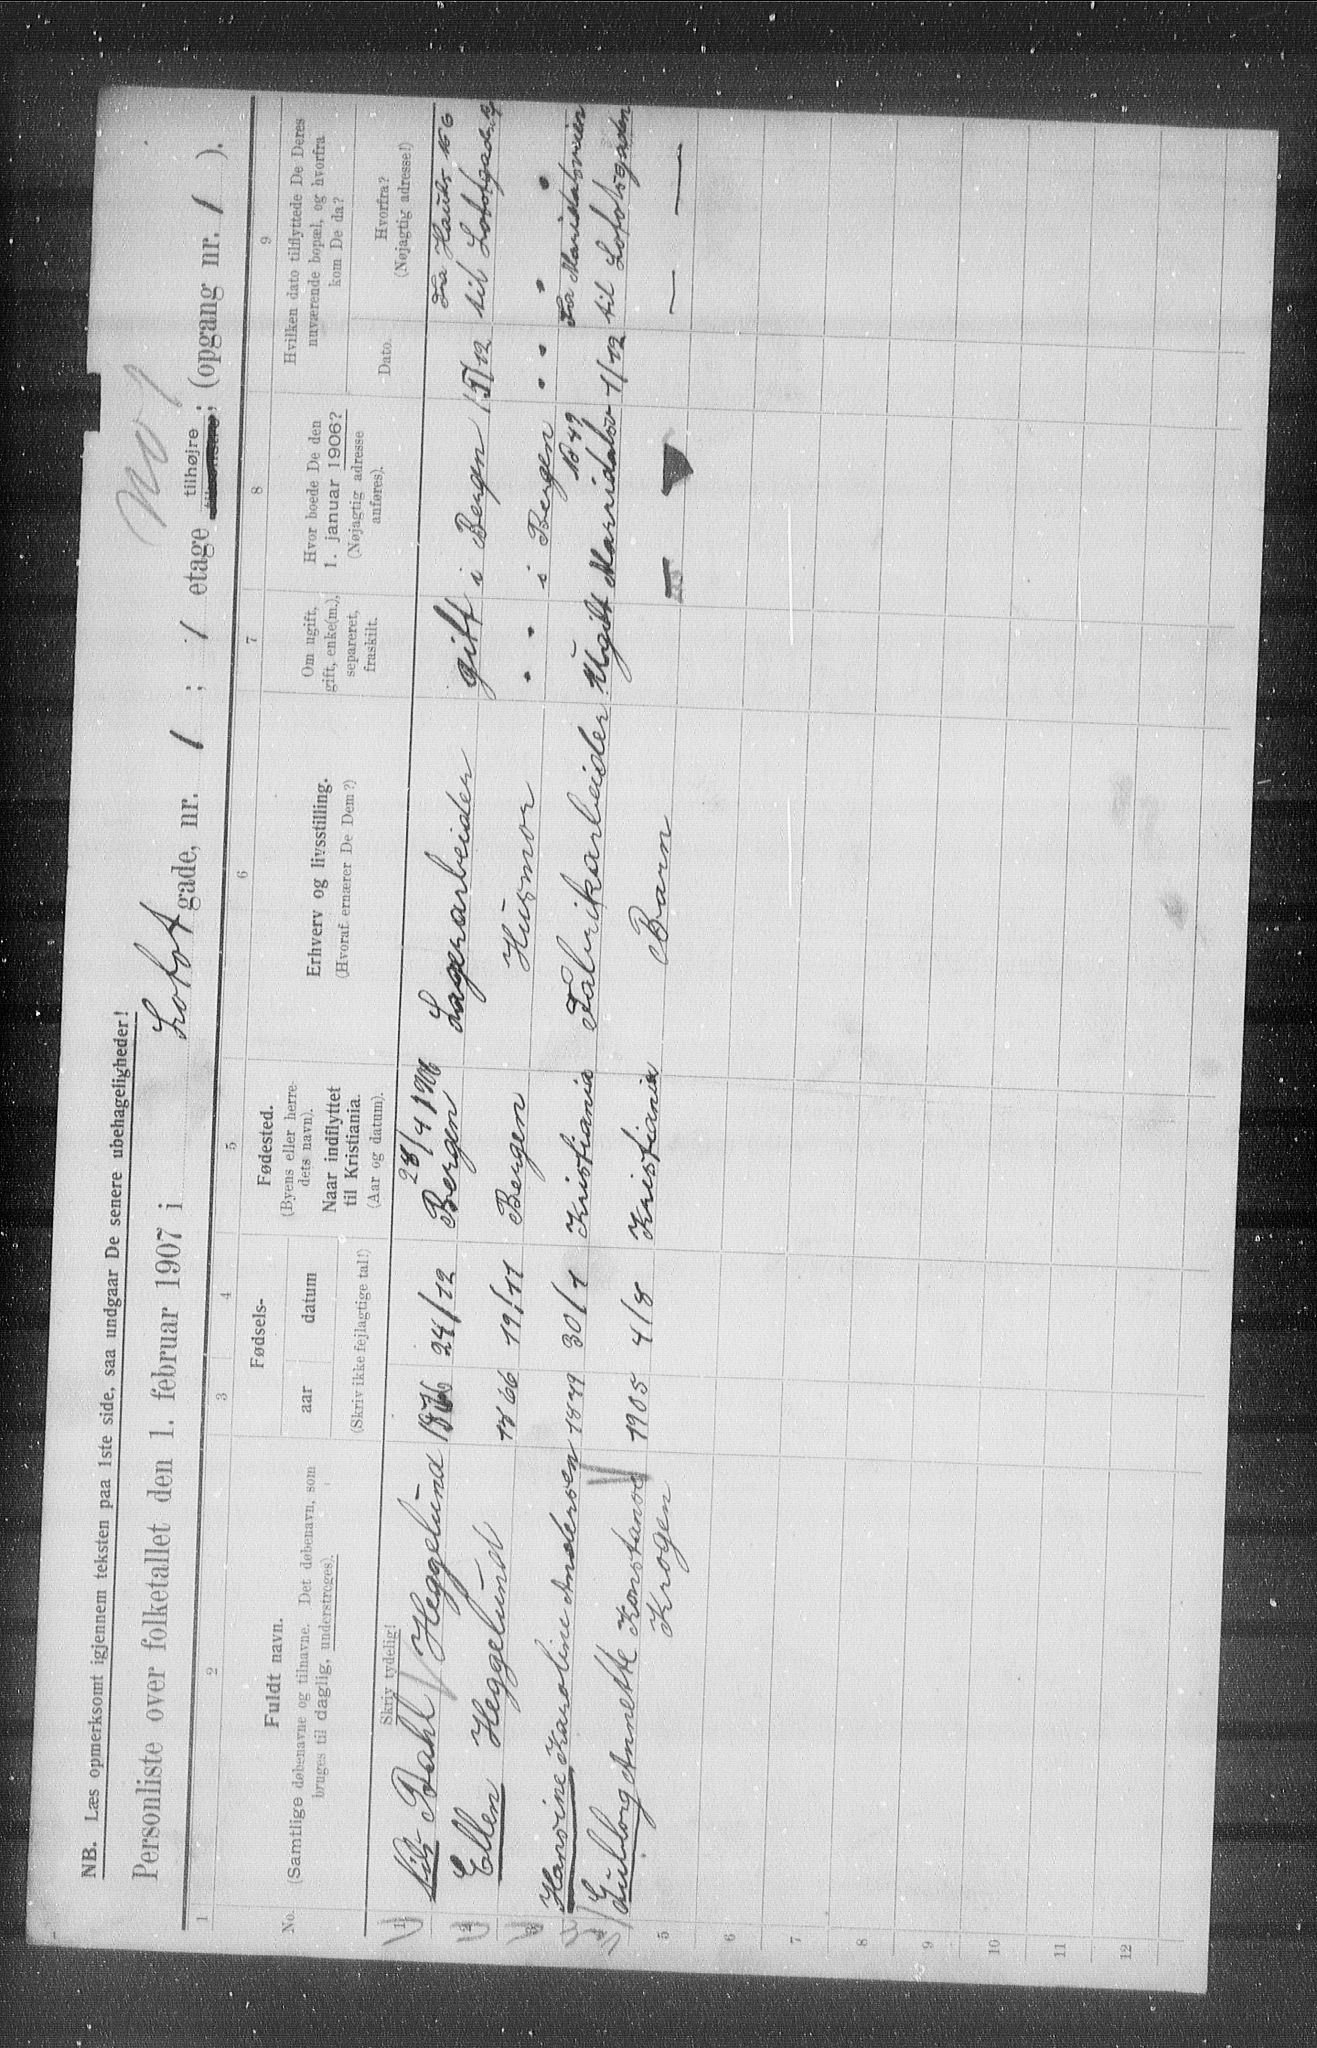 NB. Læs opmerksomt igjennem teksten paa 1ste side, saa undgaar De senere ubehageligheder!
No 1
Personliste over folketallet den 1. februar 1907 i Lofot gade, nr. 1 ; 1 etage tilhøjre ; (opgang nr. 1 ).
1 2 3 4 5 6 7 8 9
No.
Fuldt navn.
(Samtlige døbenavne og tilnavne. Det døbenavn, som
bruges til daglig, understreges).
Skriv tydelig!
Fødsels-
aar datum
(Skriv ikke fejlagtige tal!)
Fødested.
(Byens eller herre-
dets navn).
Naar indflyttet
til Kristiania.
(Aar og datum).
Erhverv og livsstilling.
(Hvoraf ernærer De Dem?)
Om ugift,
gift, enke(m.),
separeret,
fraskilt.
Hvor boede De den
1. januar 1906?
(Nøjagtig adresse
anføres).
Hvilken dato tilflyttede De Deres
nuværende bopæl, og hvorfra
kom De da?
Dato.
Hvorfra?
(Nøjagtig adresse!)
28/4 1906 Fra
1 Nils Dahl Heggelund 24/12 Bergen Lagerarbeider gift i Bergen til Lofotgade
2 Ellen Heggelund 1866 19/11 Bergen Husmor " " i Bergen " " " "
3 Hansine Karoline Andersen 1879 30/1 Kristiania Fabrikarbeider Ugift 1/12 til Lofotgaden
4 Gulborg Annette Konstanse 1905 4/8 Kristiania Barn — —
5 Krogen
6
7
8
9
10
11
12